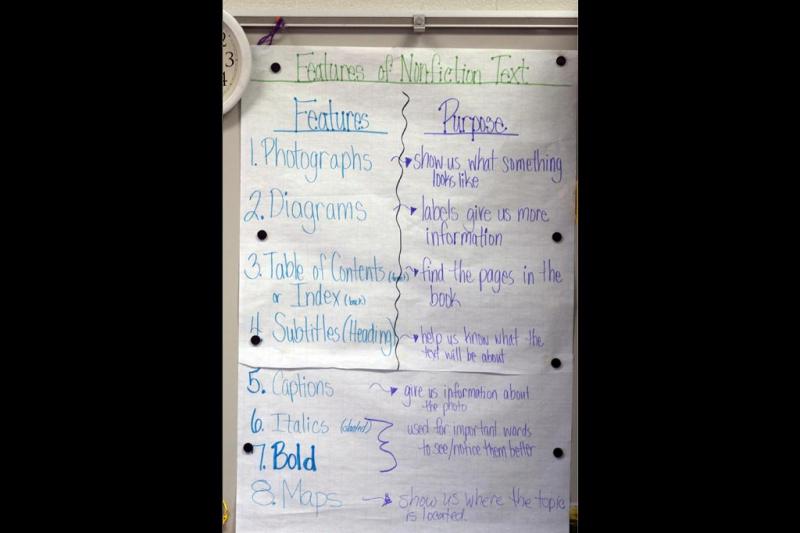 2
3
4
Features of Nonfiction Text
Features Purpose
1. Photographs show us what something
looks like
2. Diagrams labels give us more
information
3. Table of Contents find the pages in the
or Index (back) book
4. Subtitles (Heading) help us know what the
text will be about
5. Captions give us information about
the photo
6. Italics (slanted) used for important words
7. Bold to see/notice them better
8. Maps show us where the topic
is located.